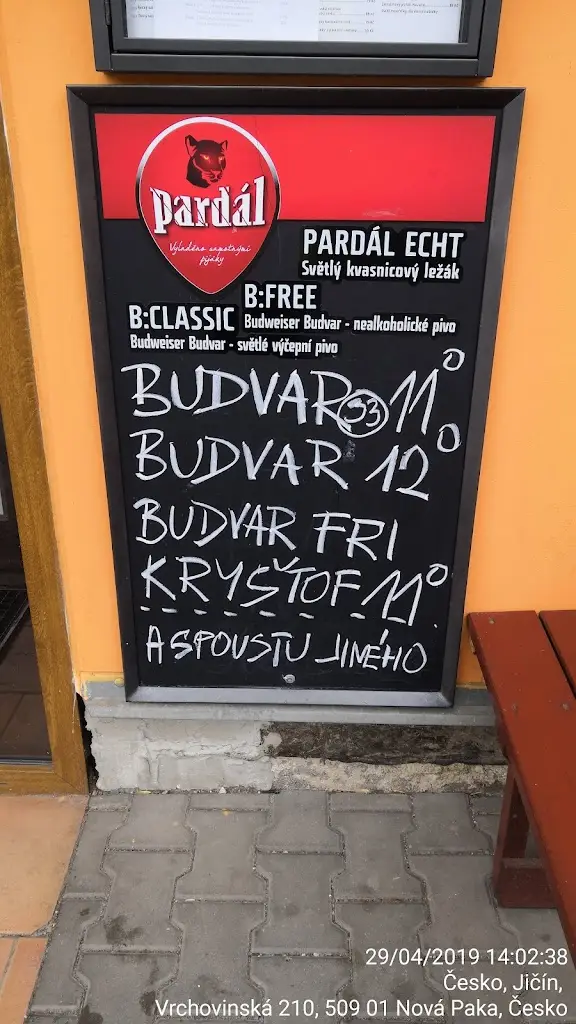 pardál
Vyladěno samotnými
pijáky
PARDÁL ECHT
Světlý kvasnicový ležák
B:FREE
Budweiser Budvar - nealkoholické pivo
B:CLASSIC
Budweiser Budvar - světlé výčepní pivo
BUDVAR 33 11°
BUDVAR 12°
BUDVAR FRI
KRYŠTOF 11°
A SPOUSTU JINÉHO
29/04/2019 14:02:38
Česko, Jičín,
Vrchovinská 210, 509 01 Nová Paka, Česko